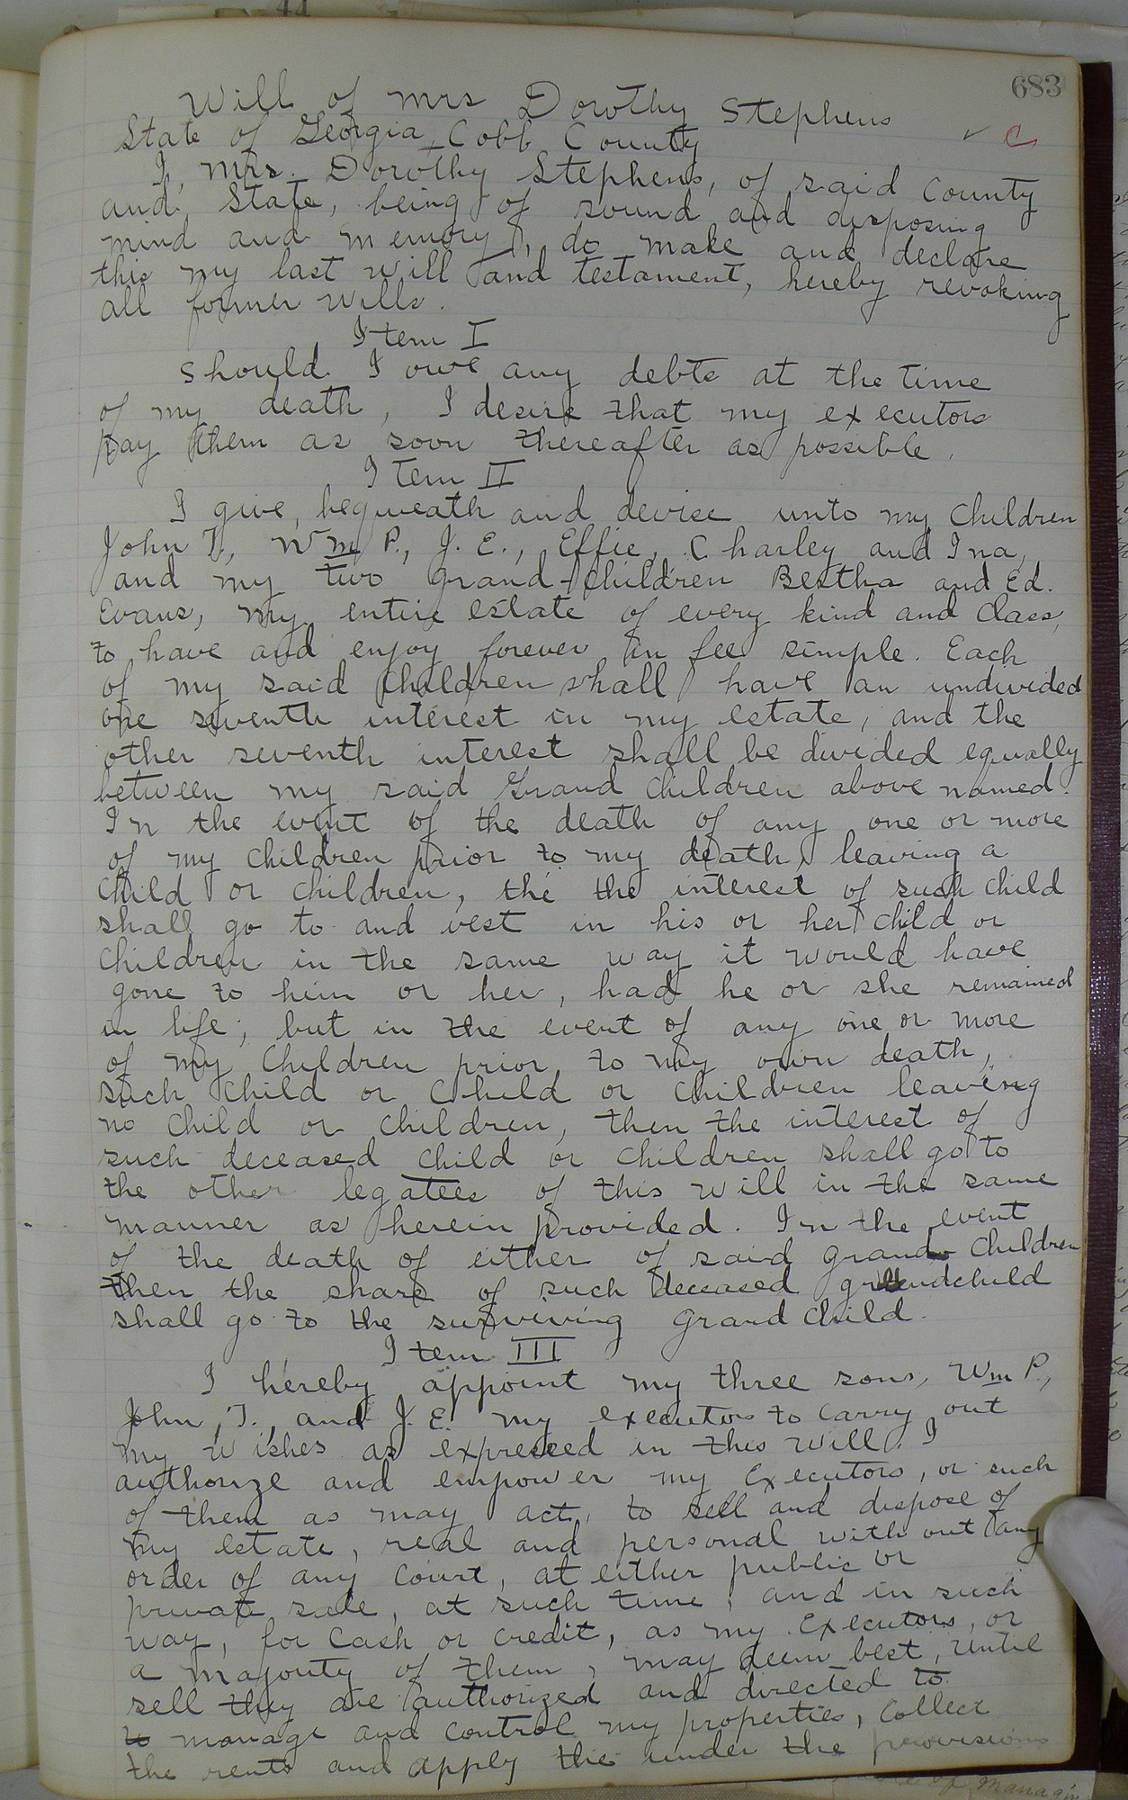 683
Will of Mrs Dorothy Stephens
State of Georgia, Cobb County
✓ C
I, Mrs. Dorothy Stephens, of said County
and State, being of sound and disposing
mind and memory, do make and declare
this my last will and testament, hereby revoking
all former wills.
Item I
Should I owe any debts at the time
of my death, I desire that my executors
pay them as soon thereafter as possible.
Item II
I give, bequeath and devise unto my Children
John T., Wm P., J. E., Effie, Charley and Ina,
and my two grand-children Bertha and Ed.
Evans, my entire estate of every kind and class,
to have and enjoy forever in fee simple. Each
of my said Children shall have an undivided
one seventh interest in my estate, and the
other seventh interest shall be divided equally
between my said Grand Children above named.
In the event of the death of any one or more
of my children prior to my death, leaving a
child or children, the the interest of such child
shall go to and vest in his or her child or
children in the same way it would have
gone to him or her, had he or she remained
in life; but in the event of any one or more
of my Children prior to my own death,
such child or child or children leaving
no child or children, then the interest of
such deceased child or children shall go to
the other legatees of this will in the same
manner as herein provided. In the event
of the death of either of said grand Children
then the share of such deceased grandchild
shall go to the surviving grand child.
Item III
I hereby appoint my three sons, Wm P.,
John, T., and J. E. my executors to carry out
my wishes as expressed in this will. I
authorize and empower my Executors, or such
of them as may act, to sell and dispose of
my estate, real and personal with out any
order of any Court, at either public or
private sale, at such time, and in such
way, for Cash or credit, as my Executors, or
a majority of them, may deem best, until
sell they are authorized and directed to
to manage and control my properties, collect
the rents and apply the under the provisions